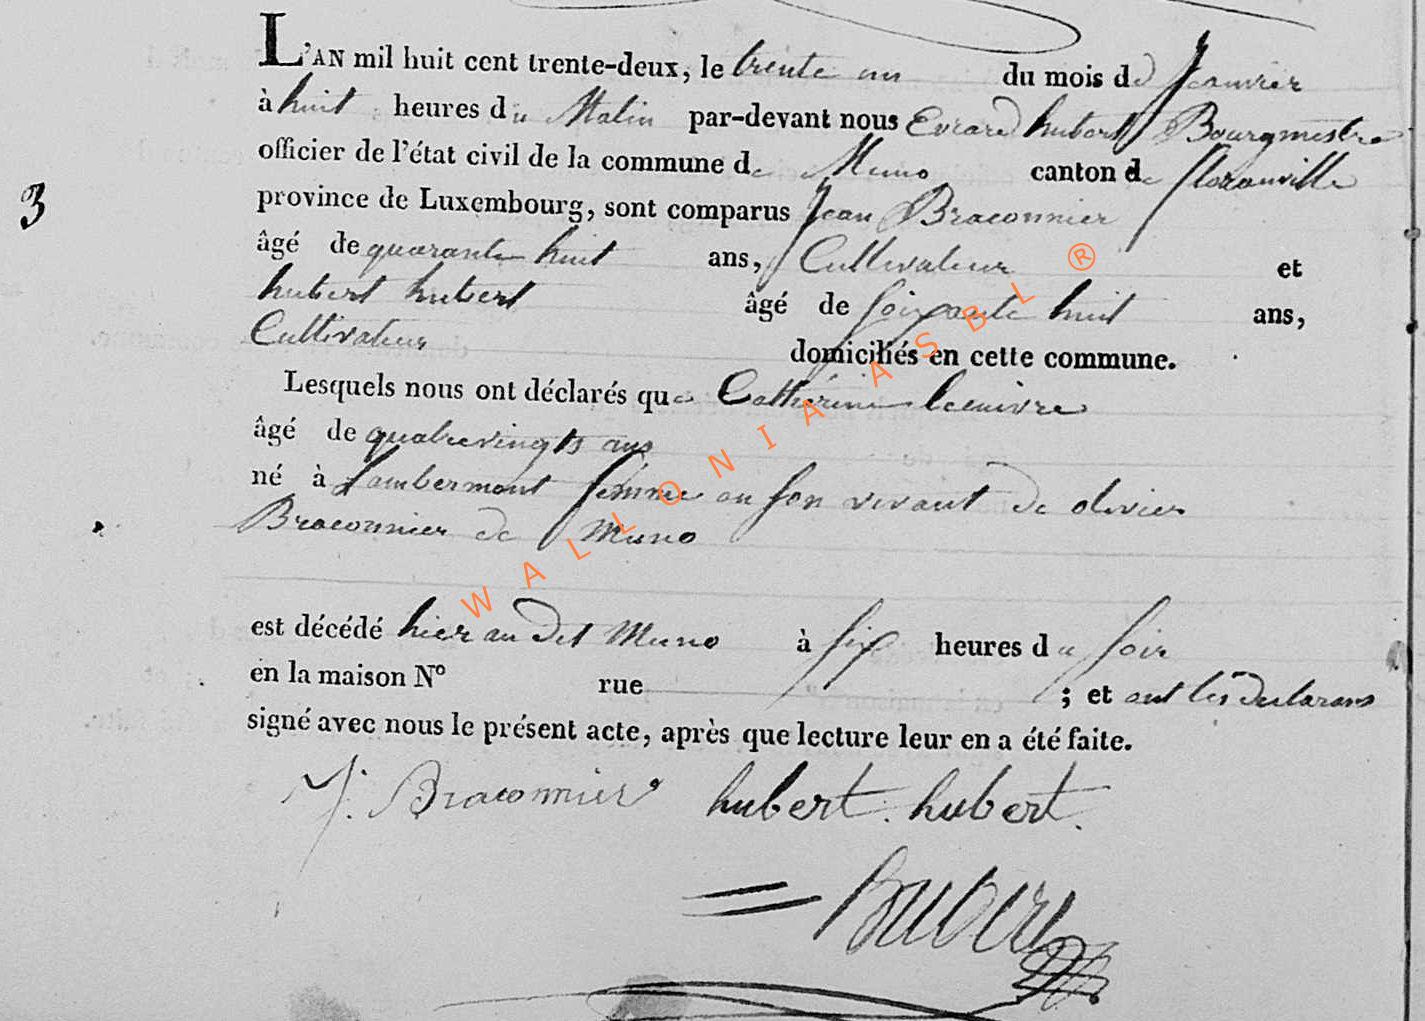 L'AN mil huit cent trente-deux, le trente un du mois de Janvier
à huit heures du Matin par-devant nous Evrard hubert Bourgmestre
officier de l'état civil de la commune de Muno canton de florenville
3
province de Luxembourg, sont comparus Jean Braconnier
âgé de quarante huit ans, Cultivateur et
hubert hubert âgé de soixante huit ans,
Cultivateur domiciliés en cette commune.
Lesquels nous ont déclarés que Catherine
âgé de quatrevingts ans
né à Lambermont femme en son vivant de olivier
Braconnier de Muno
est décédé hier au dit Muno à six heures du soir
en la maison N° rue ; et ont les declarans
signé avec nous le présent acte, après que lecture leur en a été faite.
J. Braconnier hubert. hubert.
hubert
WALLONIA ASBL ®